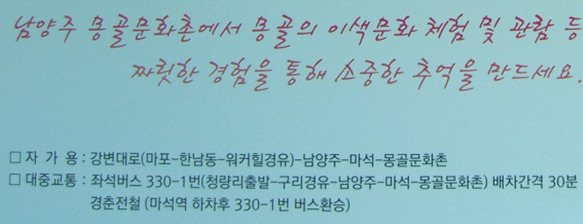 남양주 몽골문화촌에서 몽골의 이색문화 체험 및 관람 등
짜릿한 경험을 통해 소중한 추억을 만드세요.
□ 자 가 용 : 강변대로(마포-한남동-워커힐경유)-남양주-마석-몽골문화촌
□ 대중교통 : 좌석버스 330-1번(청량리출발-구리경유-남양주-마석-몽골문화촌) 배차간격 30분
경춘전철 (마석역 하차후 330-1번 버스환승)